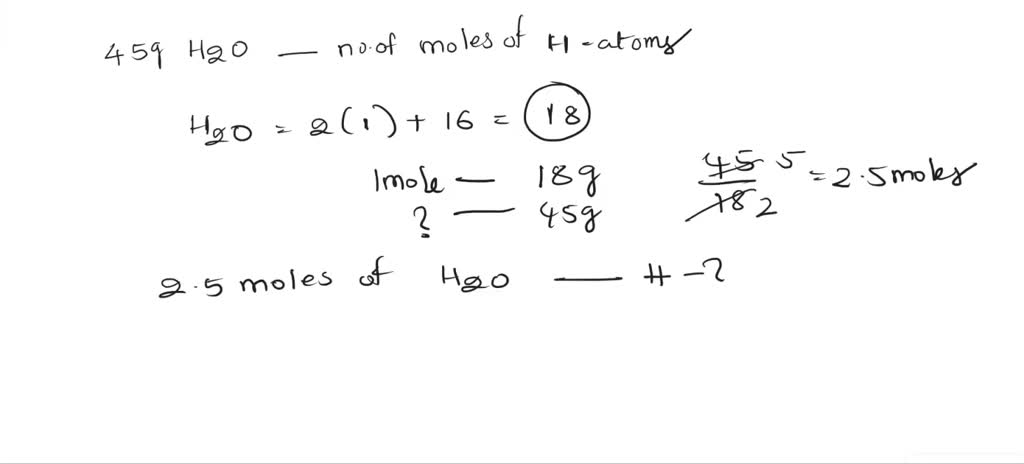 45g H2O — no.of moles of H-atoms
H2O = 2(1) + 16 = 18
1mole — 18g
? — 45g
45 5
18 2
= 2.5moles
2.5 moles of H2O — H-?